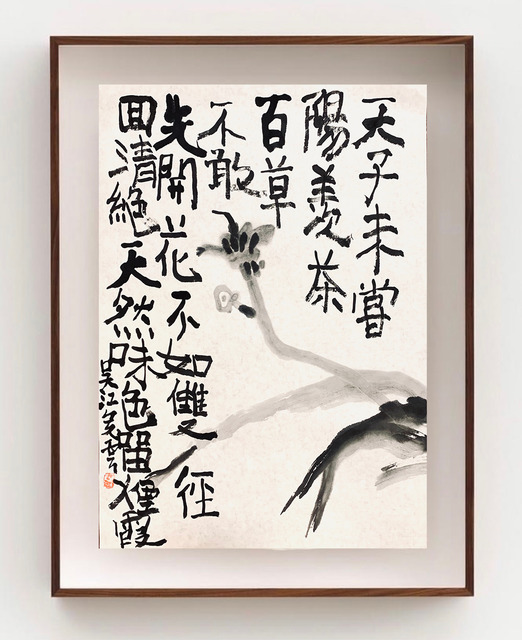 天子未嘗
陽羨茶
百草
不敢
先開花不如雙徑
回清絕天然味色留煙霞
吴江